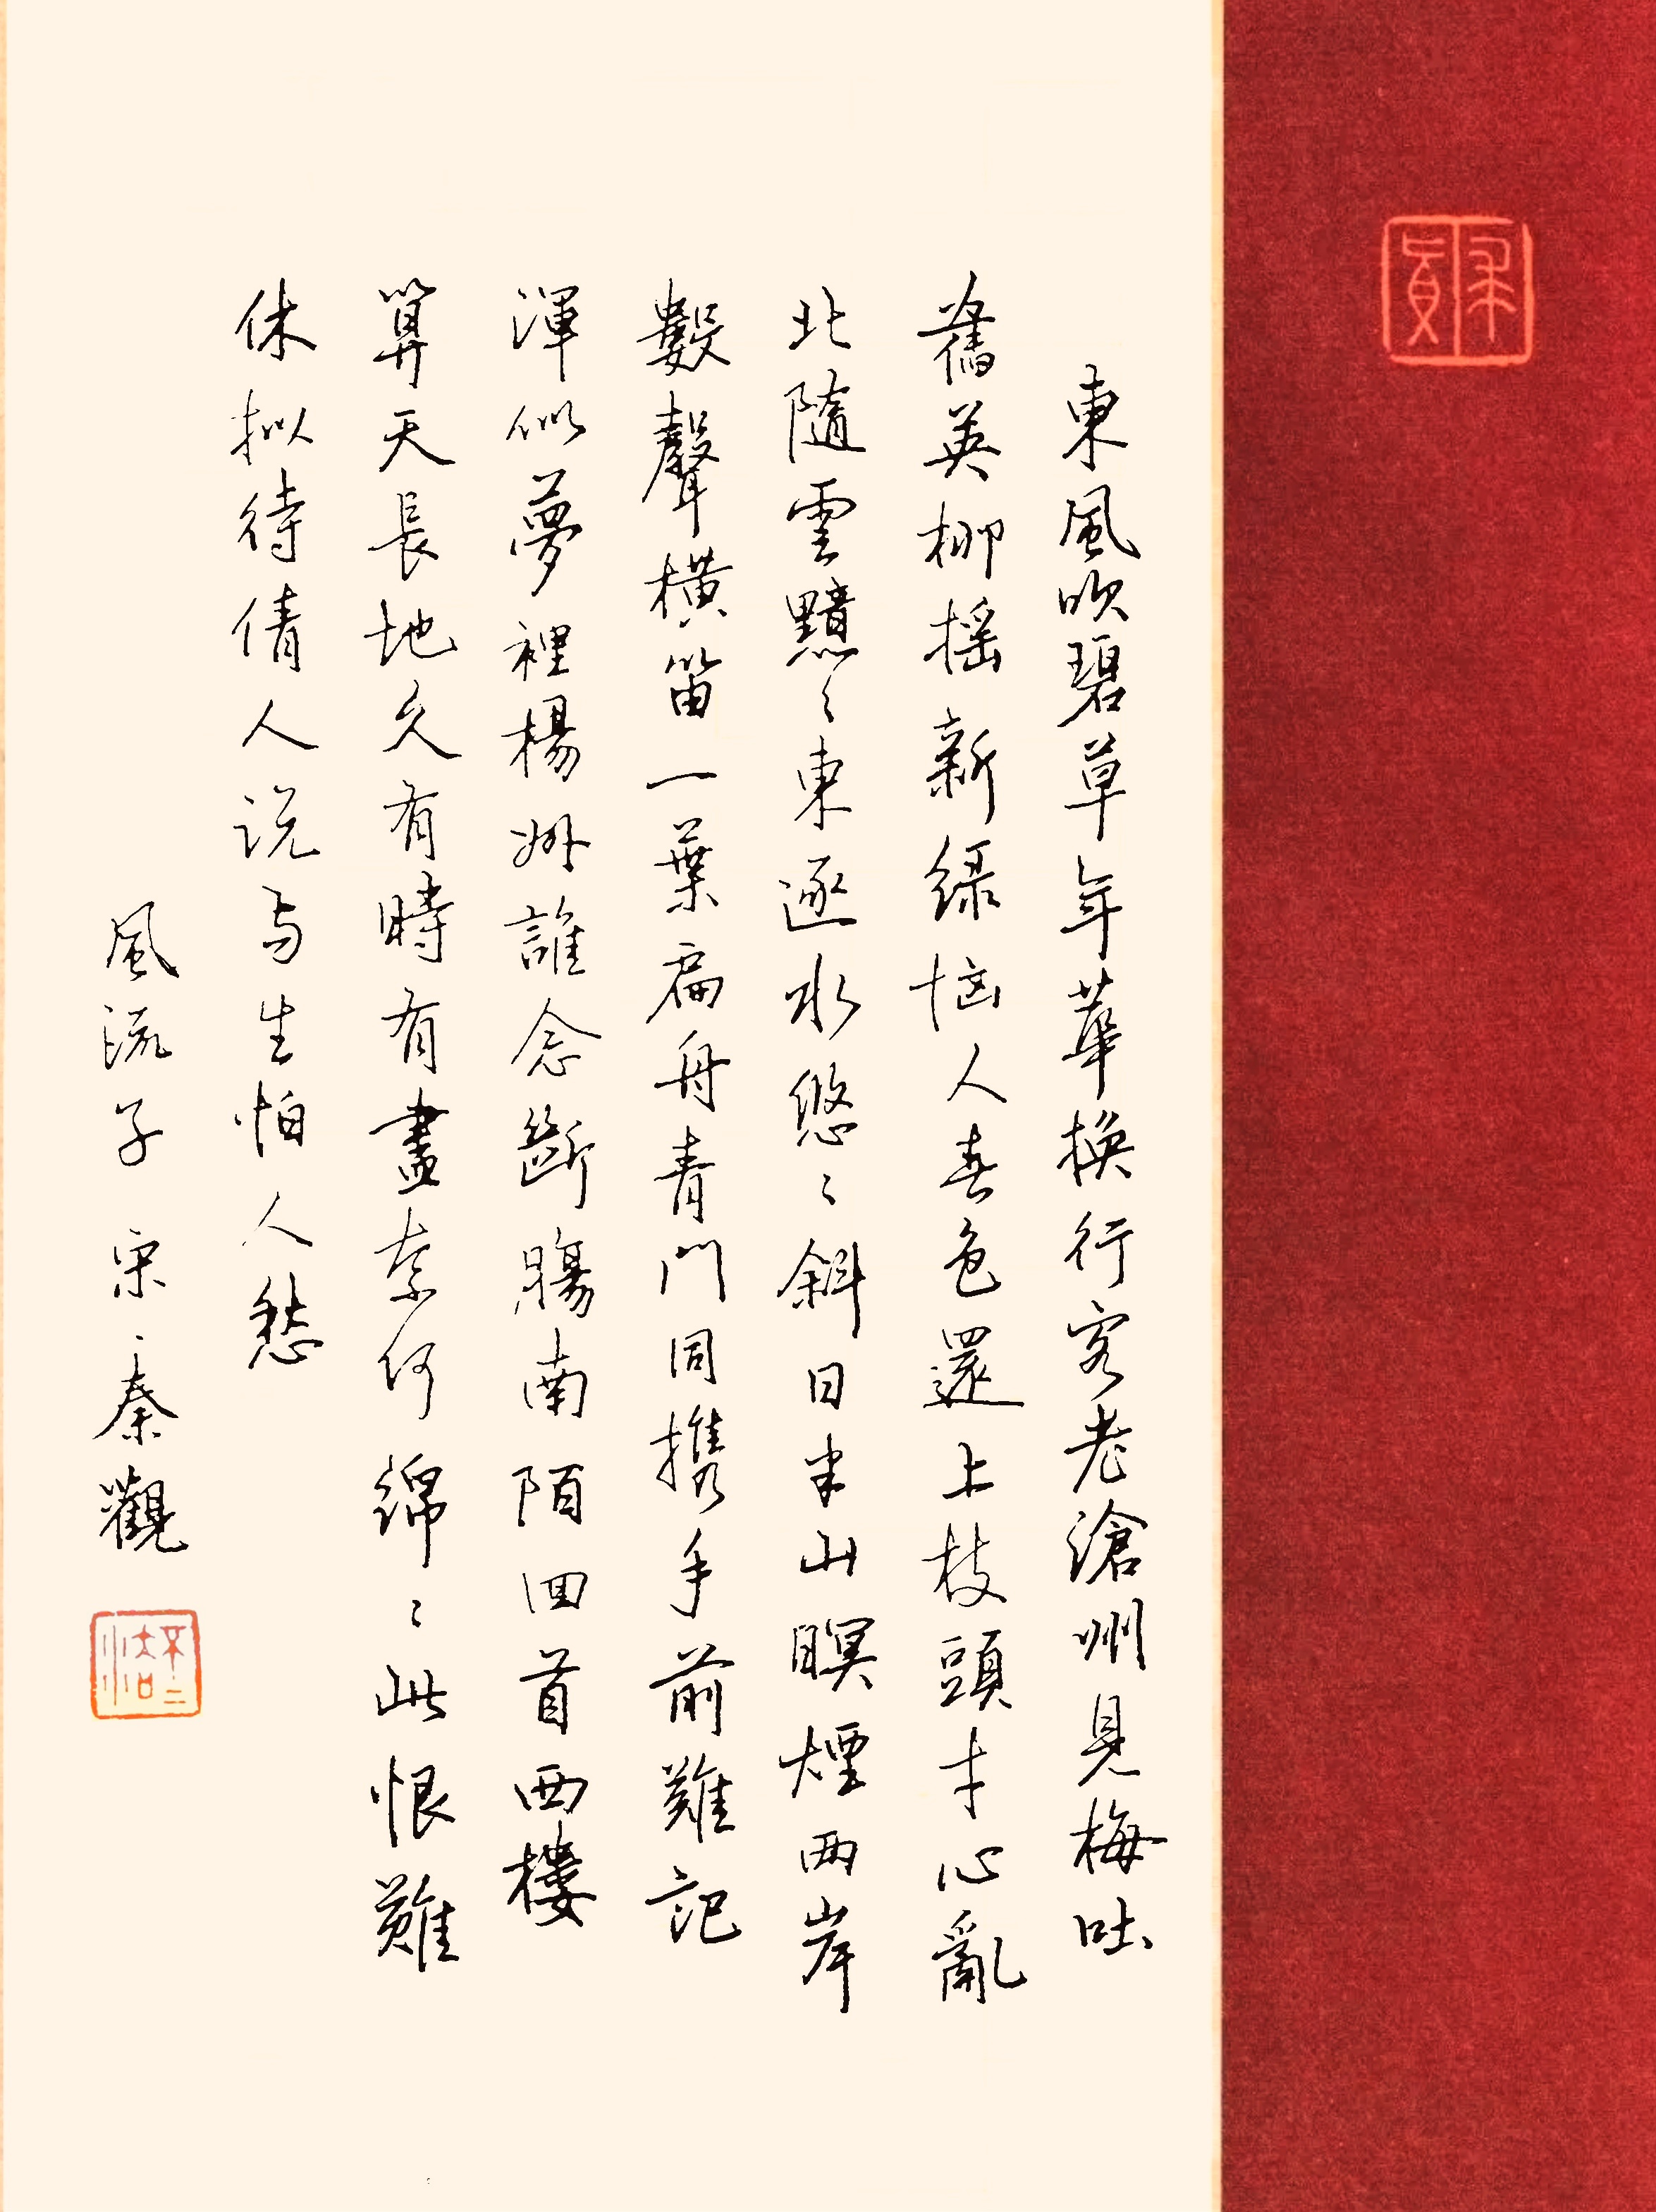 東風吹碧草年華換行客老滄州見梅吐
舊英柳搖新綠惱人春色還上枝頭寸心亂
北隨雲黯〻東逐水悠〻斜日半山暝煙兩岸
數聲橫笛一葉扁舟青門同携手前難記
渾似夢裡楊州誰念斷腸南陌回首西樓
算天長地久有時有盡奈何綿〻此恨難
休拟待倩人说与生怕人愁
風流子 宋·秦觀